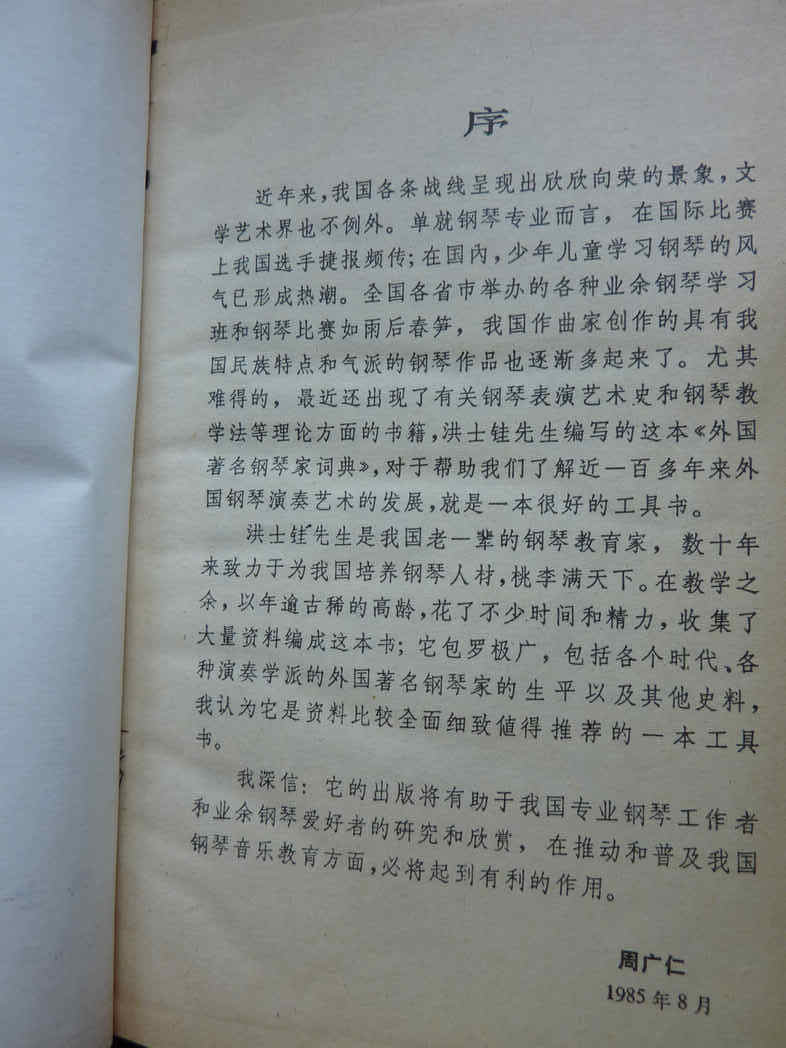 序
近年来，我国各条战线呈现出欣欣向荣的景象，文
学艺术界也不例外。单就钢琴专业而言，在国际比赛
上我国选手捷报频传；在国内，少年儿童学习钢琴的风
气已形成热潮。全国各省市举办的各种业余钢琴学习
班和钢琴比赛如雨后春笋，我国作曲家创作的具有我
国民族特点和气派的钢琴作品也逐渐多起来了。尤其
难得的，最近还出现了有关钢琴表演艺术史和钢琴教
学法等理论方面的书籍，洪士銈先生编写的这本《外国
著名钢琴家词典》，对于帮助我们了解近一百多年来外
国钢琴演奏艺术的发展，就是一本很好的工具书。
洪士銈先生是我国老一辈的钢琴教育家，数十年
来致力于为我国培养钢琴人材，桃李满天下。在教学之
余，以年逾古稀的高龄，花了不少时间和精力，收集了
大量资料编成这本书；它包罗极广，包括各个时代、各
种演奏学派的外国著名钢琴家的生平以及其他史料，
我认为它是资料比较全面细致值得推荐的一本工具
书。
我深信：它的出版将有助于我国专业钢琴工作者
和业余钢琴爱好者的研究和欣赏，在推动和普及我国
钢琴音乐教育方面，必将起到有利的作用。
周广仁
1985年8月